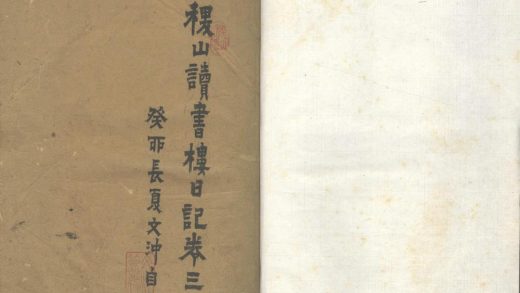 稷山讀書樓日記卷三
癸卯長夏文沖自